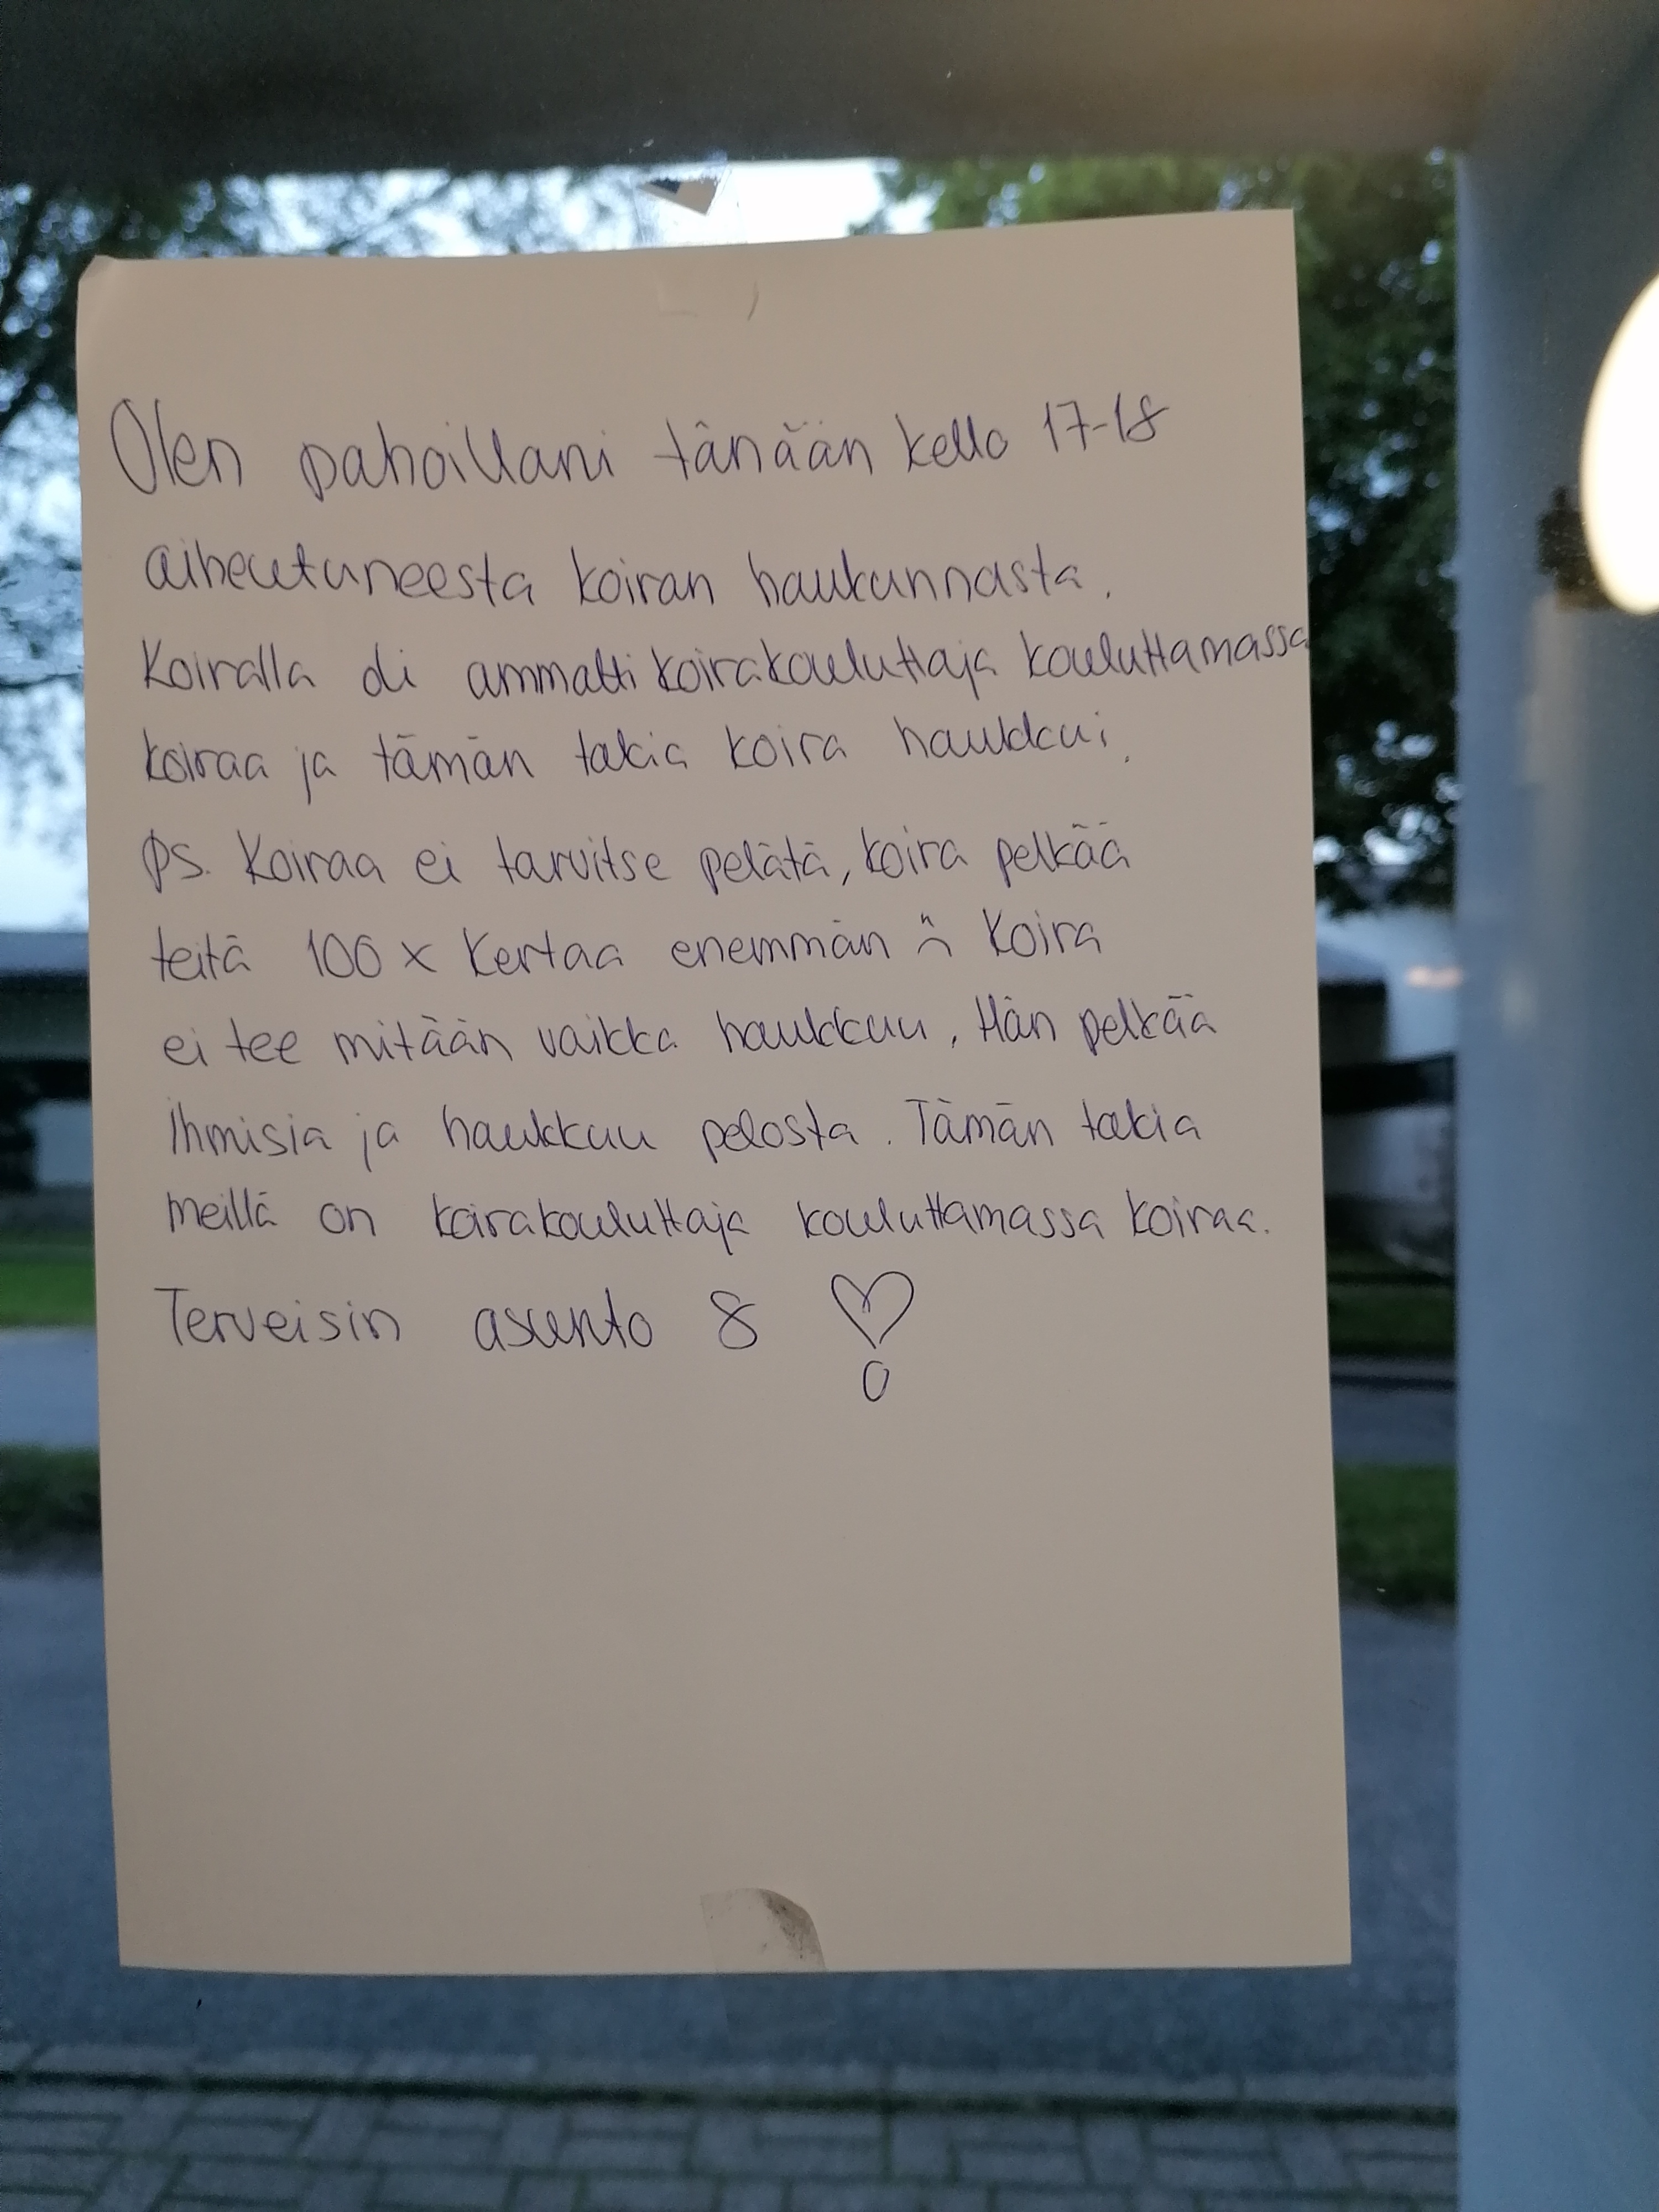 Olen pahoillani tänään kello 17-18
aiheutuneesta koiran haukunnasta.
Koiralla oli ammatti koirakouluttaja kouluttamassa
koiraa ja tämän takia koira haukkui.
Ps. Koiraa ei tarvitse pelätä, koira pelkää
teitä 100 x kertaa enemmän :( Koira
ei tee mitään vaikka haukkuu. Hän pelkää
ihmisiä ja haukkuu pelosta. Tämän takia
meillä on koirakouluttaja kouluttamassa koiraa.
Terveisin asunto 8 ♡